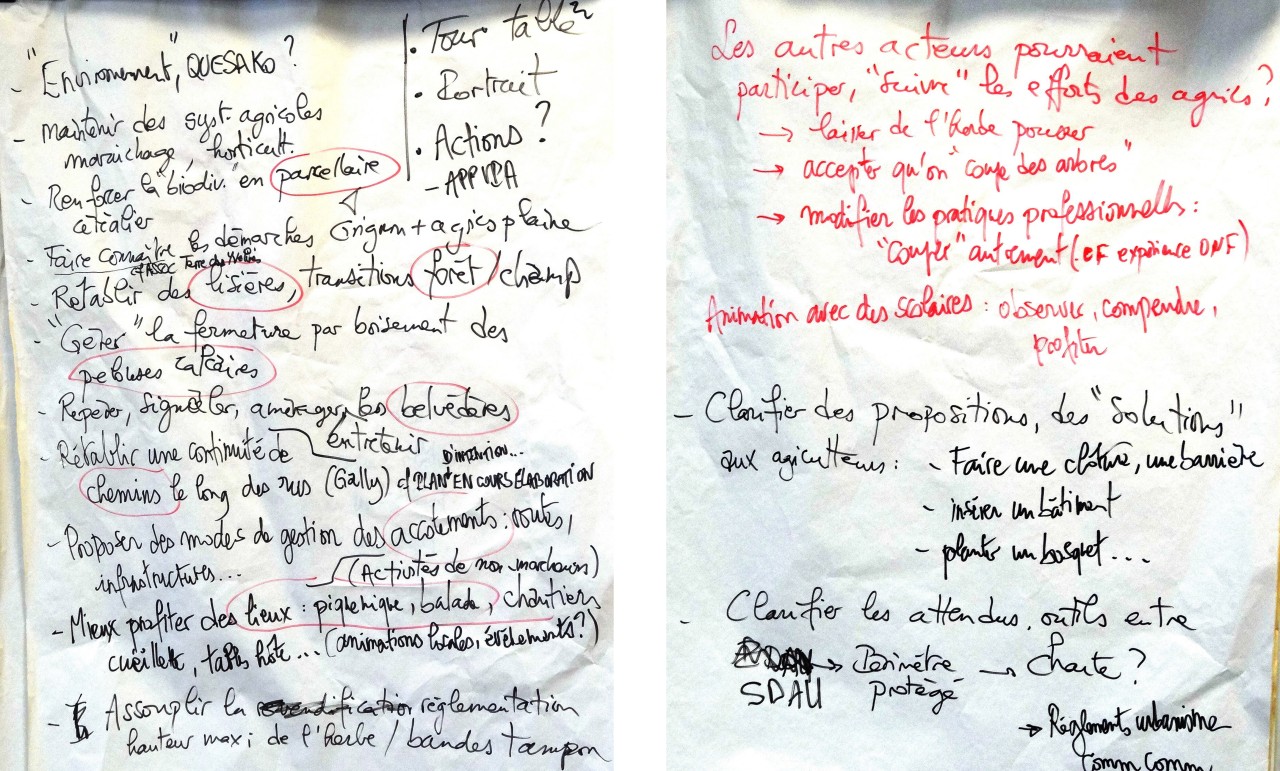 "Environnement", QUESAKO ?
. Tour table
. Portrait
. Actions ?
- APPVPA
- maintenir des syst. agricoles
maraichage, horticult.
- Renforcer la "biodiv." en parcellaire
céréalier
Grignon + agrics plaine
- Faire connaître les démarches
cf ASSOC Terre des
- Rétablir des lisières, transitions forêt / champ
- "Gérer" la fermeture par boisement des
pelouses calcaires
- Repérer, signaler, aménager, les belvédères
entretenir
- Rétablir une continuité de
chemins le long des rus (Gally) cf PLAN EN COURS ÉLABORATION
- Proposer des modes de gestion des accotements : routes,
infrastructures...
(Activités de non-marcheurs)
- Mieux profiter des lieux : piquenique, balade, chantiers
cueillette, table hôte... (animations locales, événements ?)
- Assouplir la réglementation
hauteur maxi de l'herbe / bandes tampon
Les autres acteurs pourraient
participer, "suivre" les efforts des agrics ?
→ laisser de l'herbe pousser
→ accepter qu'on "coupe des arbres"
→ modifier les pratiques professionnelles :
"couper" autrement (. cf expérience ONF)
Animation avec des scolaires : observer, comprendre,
profiter
- Clarifier des propositions, des "solutions"
aux agriculteurs : - Faire une clôture, une barrière
- insérer un bâtiment
- planter un bosquet...
- Clarifier les attendus, outils entre
SDAU → Périmètre protégé → charte ?
→ Règlements urbanisme
Comm Comm